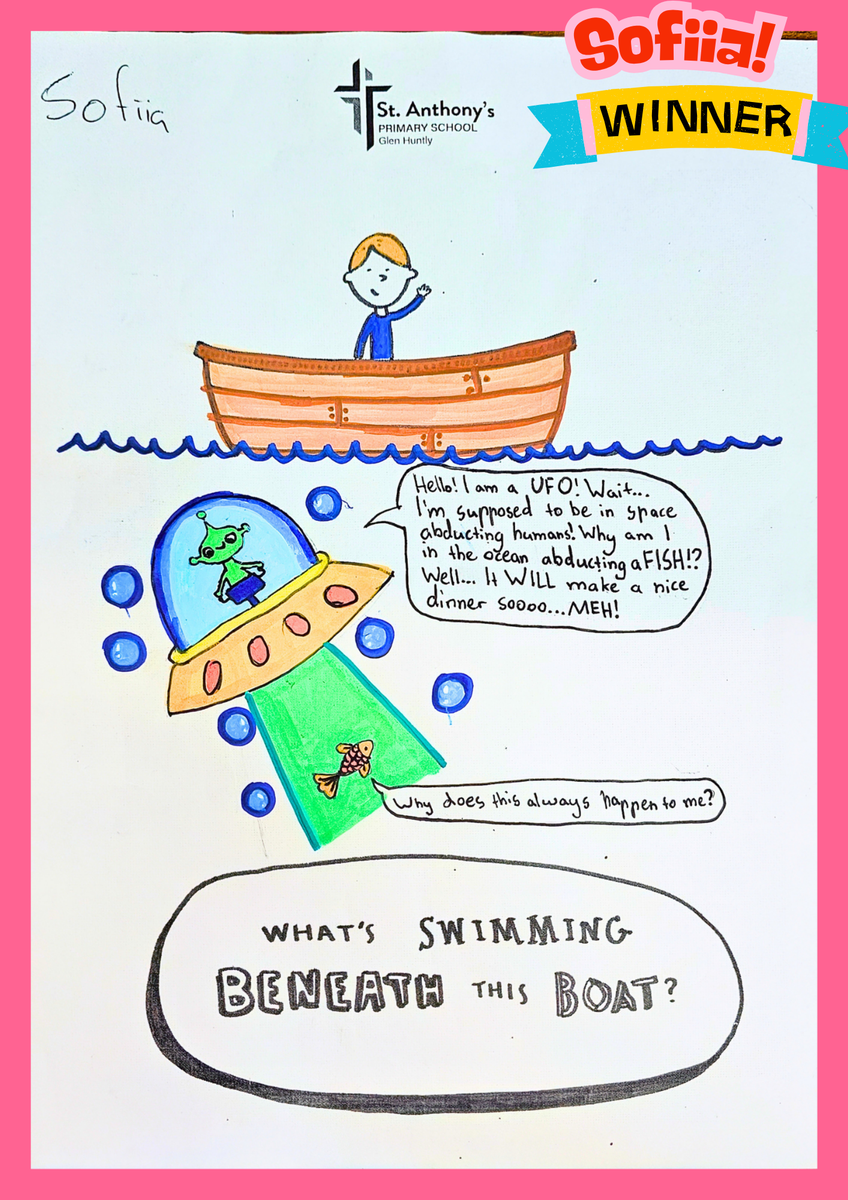 Sofiia!
WINNER
Sofiia
St. Anthony's
PRIMARY SCHOOL
Glen Huntly
Hello! I am a UFO! Wait...
I'm supposed to be in space
abducting humans! Why am I
in the ocean abducting a FISH!?
Well... It WILL make a nice
dinner soooo...MEH!
Why does this always happen to me?
WHAT'S SWIMMING
BENEATH THIS BOAT?